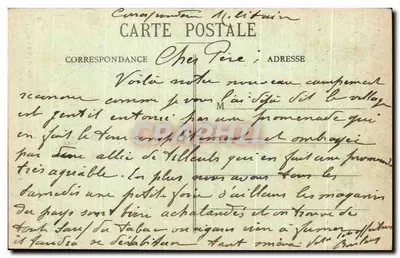 Correspondance Militaire
CARTE POSTALE
CORRESPONDANCE Cher Père ; ADRESSE
Voilà notre nouveau campement
comme je vous l'ai déjà dit le village
M
est gentil entouré par une promenade qui
en fait le tour complètement et ombragée
par allée de tilleuls qui en fait une promenade
très agréable. plus nous tous les
samedis une petite foire d'ailleurs les magasins
du pays sont bien achalandés et on trouve de
tout sauf du tabac ou cigares rien à fumer
il faudra se déshabituer tant mieux